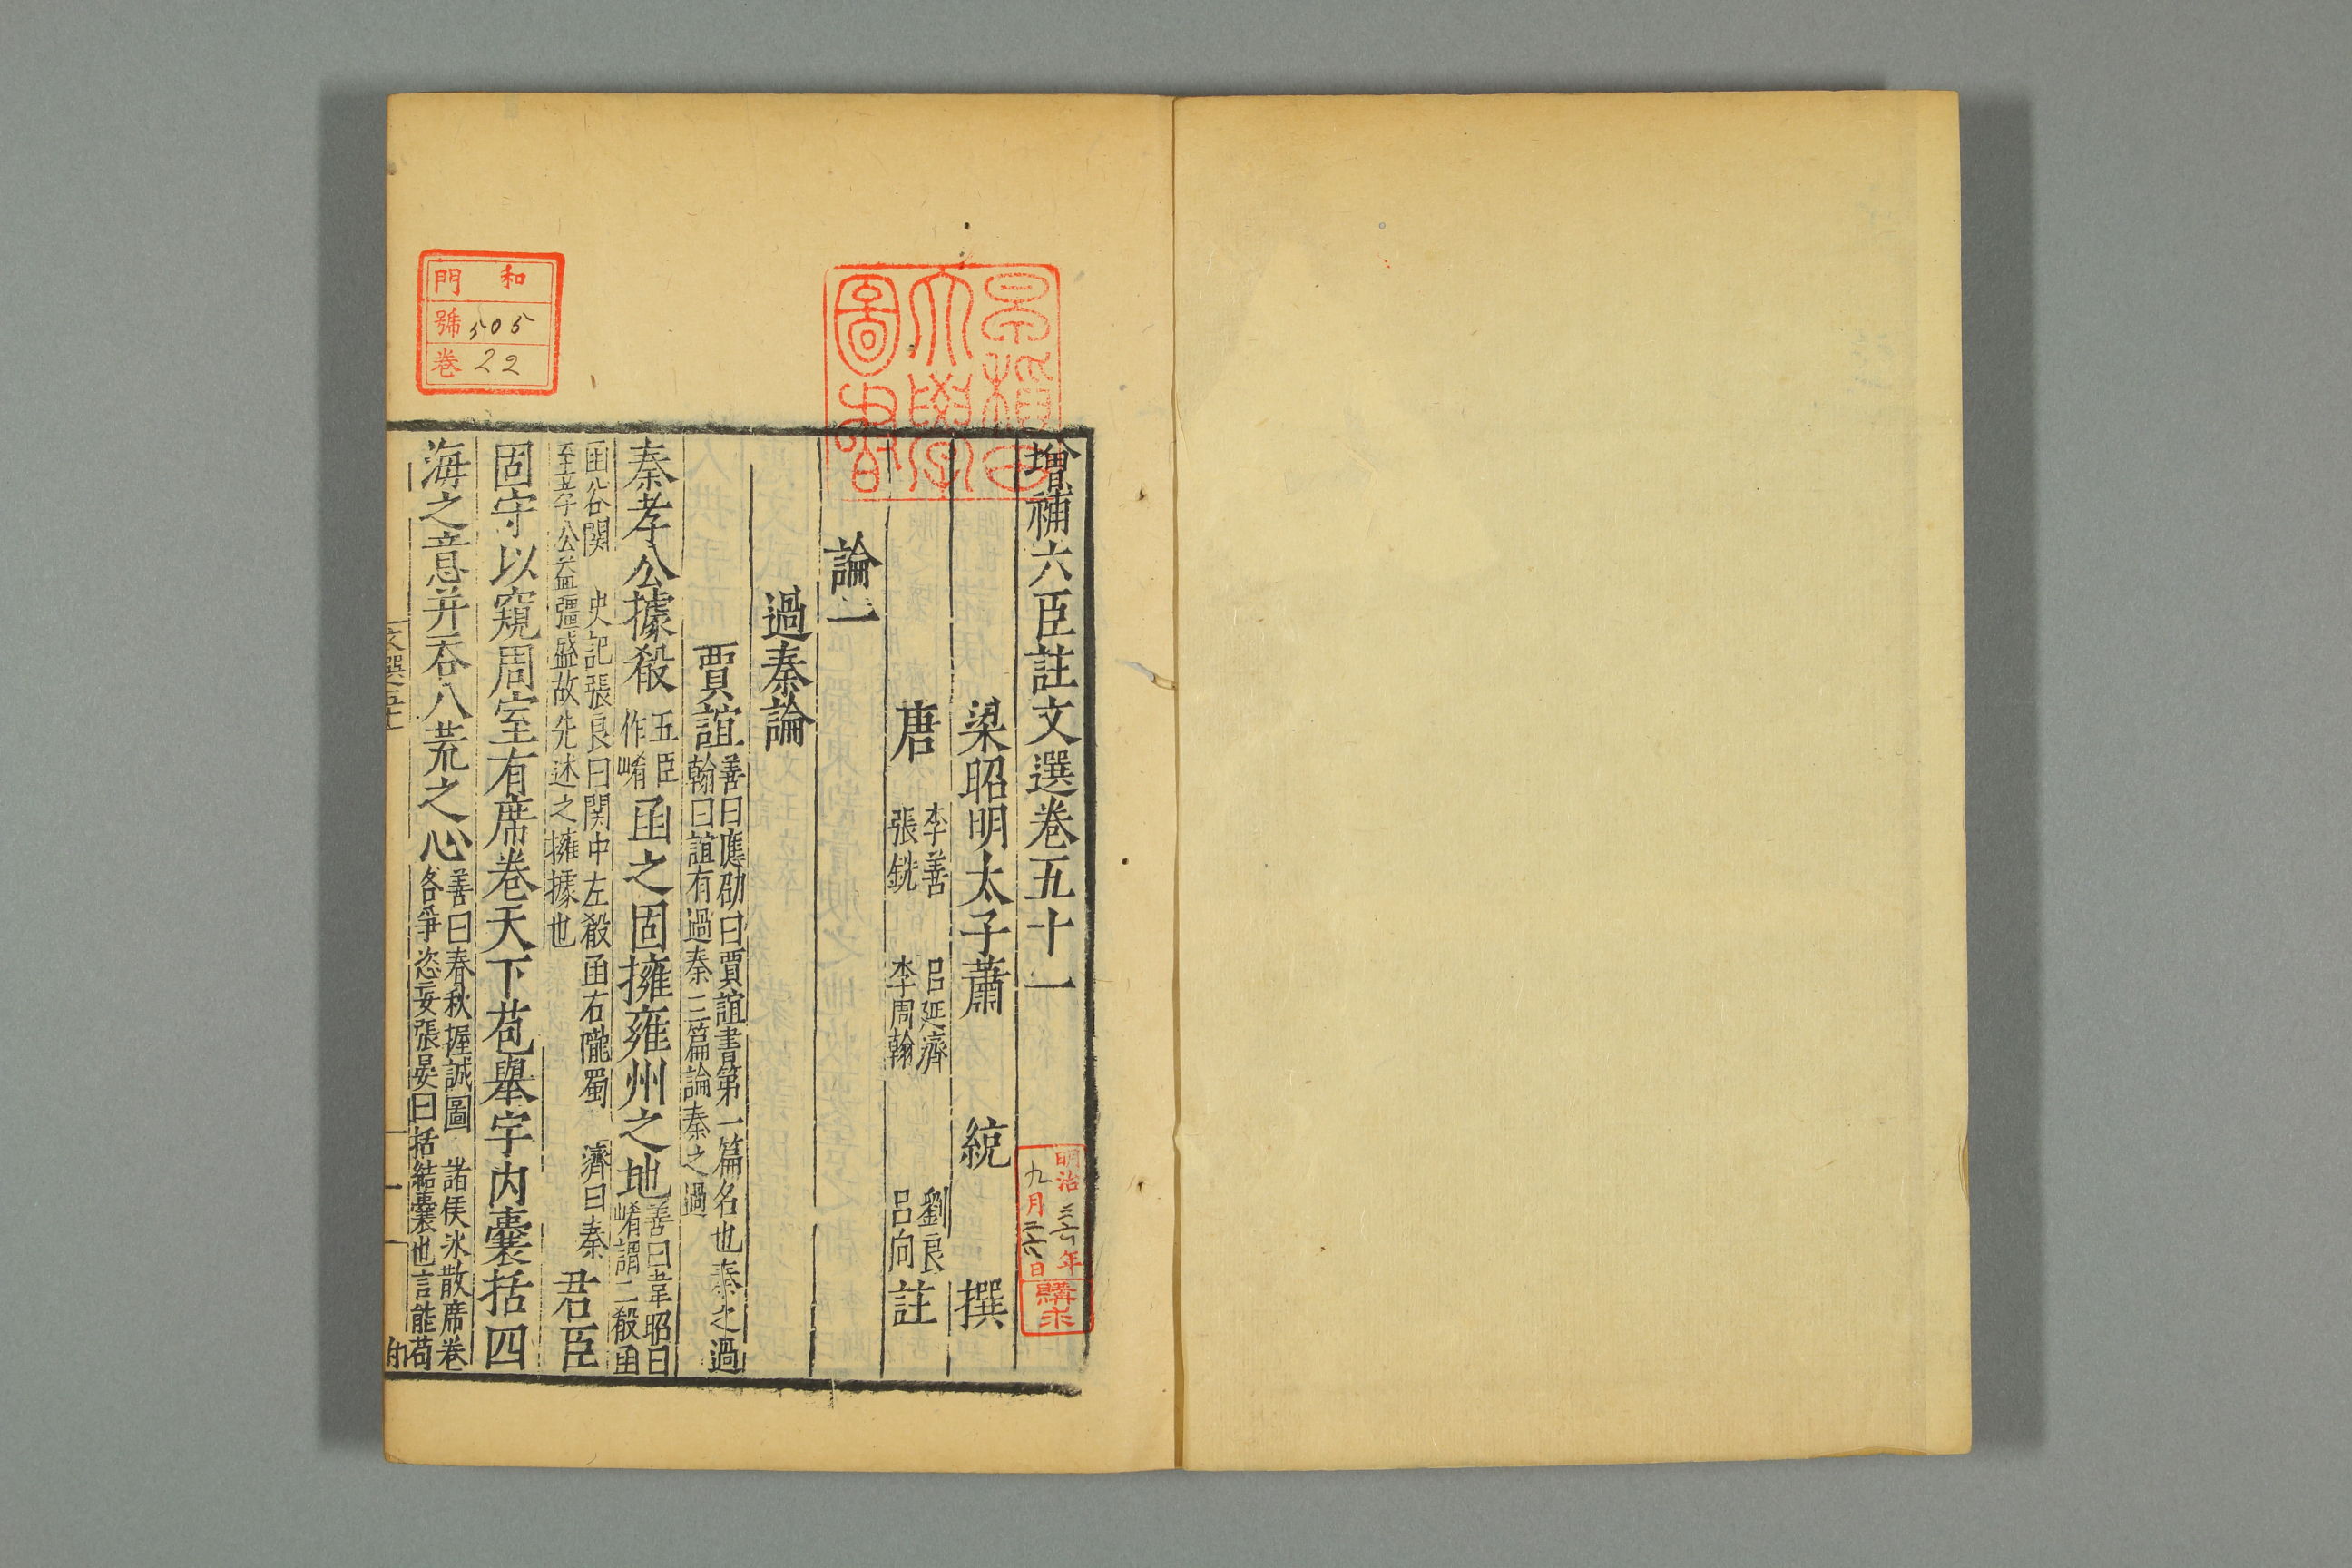 增補六臣註文選卷五十一
梁昭明太子蕭統撰
唐
李善 呂延濟 劉良
張銑 李周翰 呂向
註
論一
過秦論
賈誼
善曰應劭曰賈誼書第一篇名也秦之過
翰曰誼有過秦二篇論秦之過
秦孝公據殽
五臣
作崤
函之固擁雍州之地
善曰韋昭曰
崤謂二殽函
函谷関 史記張良曰関中左殽函右隴蜀 濟曰秦
至孝公益彊盛故先述之擁據也
君臣
固守以窺周室有席卷天下苞舉宇内囊括四
海之意并吞八荒之心
善曰春秋握誠圖 諸侯冰散席卷
各爭恣妄張晏曰括結囊也言能苞
文選五十一
一
和
門
號 505
卷 22
圖書
明治三六年
九月二六日
購求